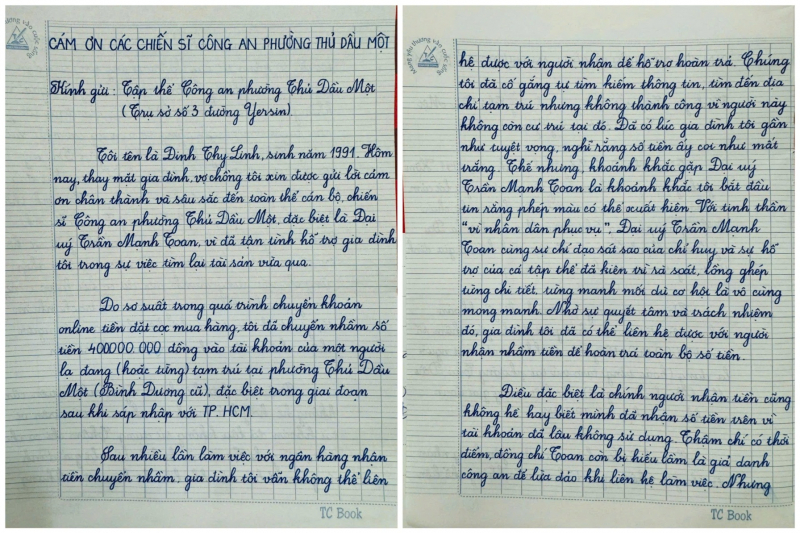 CÁM ƠN CÁC CHIẾN SĨ CÔNG AN PHƯỜNG THỦ DẦU MỘT
Kính gửi : Tập thể Công an phường Thủ Dầu Một
(Trụ sở số 3 đường Yersin)
Tôi tên là Đinh Thy Linh, sinh năm 1991. Hôm
nay, thay mặt gia đình, vợ chồng tôi xin được gửi lời cám
ơn chân thành và sâu sắc đến toàn thể cán bộ, chiến
sĩ Công an phường Thủ Dầu Một, đặc biệt là Đại
uý Trần Mạnh Toan, vì đã tận tình hỗ trợ gia đình
tôi trong sự việc tìm lại tài sản vừa qua.
Do sơ suất trong quá trình chuyển khoản
online tiền đặt cọc mua hàng, tôi đã chuyển nhầm số
tiền 400000 000 đồng vào tài khoản của một người
lạ đang (hoặc từng) tạm trú tại phường Thủ Dầu
Một (Bình Dương cũ), đặc biệt trong giai đoạn
sau khi sáp nhập với TP. HCM.
Sau nhiều lần làm việc với ngân hàng nhận
tiền chuyển nhầm, gia đình tôi vẫn không thể liên
TC Book
Mong yêu thương vào cuộc sống
hệ được với người nhận để hỗ trợ hoàn trả. Chúng
tôi đã cố gắng tự tìm kiếm thông tin, tìm đến địa
chỉ tạm trú nhưng không thành công vì người này
không còn cư trú tại đó. Đã có lúc gia đình tôi gần
như tuyệt vọng, nghĩ rằng số tiền ấy coi như mất
trắng. Thế nhưng, khoảnh khắc gặp Đại uý
Trần Mạnh Toan là khoảnh khắc tôi bắt đầu
tin rằng phép màu có thể xuất hiện. Với tinh thần
"vì nhân dân phục vụ", Đại uý Trần Mạnh
Toan cùng sự chỉ đạo sát sao của chỉ huy và sự hỗ
trợ của cả tập thể đã kiên trì rà soát, lồng ghép
từng chi tiết, từng manh mối dù cơ hội là vô cùng
mong manh. Nhờ sự quyết tâm và trách nhiệm
đó, gia đình tôi đã có thể liên hệ được với người
nhận nhầm tiền để hoàn trả toàn bộ số tiền.
Điều đặc biệt là chính người nhận tiền cũng
không hề hay biết mình đã nhận số tiền trên vì
tài khoản đã lâu không sử dụng. Thậm chí có thời
điểm, đồng chí Toan còn bị hiểu lầm là giả danh
công an để lừa đảo khi liên hệ làm việc. Nhưng
TC Book